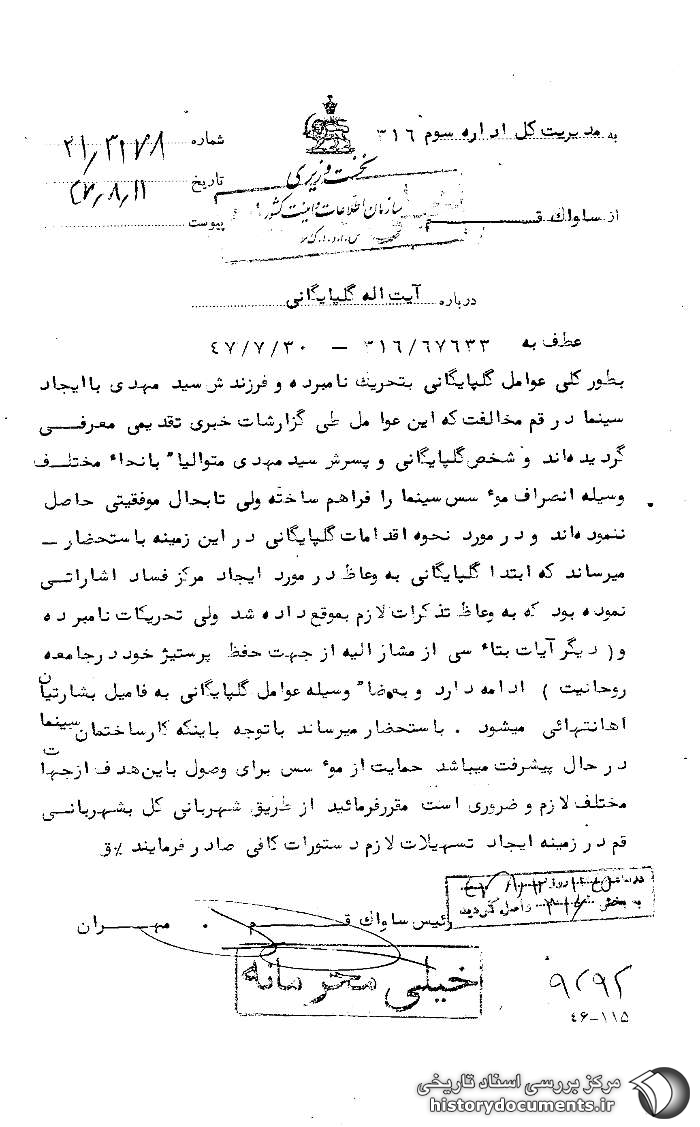 به مدیریت کل اداره سوم ۳۱۶
شماره ۲۱/۳۱۷۸
نخست وزیری
تاریخ ۴۷/۸/۱۱
سازمان اطلاعات و امنیت کشور
از ساواک قم
پیوست
س.ا.و.ا.ک
درباره آیت اله گلپایگانی
عطف به ۳۱۶/۶۷۶۳۳ – ۴۷/۷/۳۰
بطور کلی عوامل گلپایگانی بتحریک نامبرده و فرزندش سید مهدی با ایجاد
سینما در قم مخالفت که این عوامل طی گزارشات خبری تقدیمی معرفی
گردیده‌اند و شخص گلپایگانی و پسرش سید مهدی متوالیا" بانحاء مختلف
وسیله انصراف موءسس سینما را فراهم ساخته ولی تابحال موفقیتی حاصل
ننموده‌اند و در مورد نحوه اقدامات گلپایگانی در این زمینه باستحضار –
میرساند که ابتدا گلپایگانی به وعاظ در مورد ایجاد مرکز فساد اشاراتی
نموده بود که به وعاظ تذکرات لازم بموقع داده شد ولی تحریکات نامبرده
و( دیگر آیات بتاءسی از مشار الیه از جهت حفظ پرستیژ خود در جامعه
روحانیت ) ادامه دارد و بعضا" وسیله عوامل گلپایگانی به فامیل بشارتیان
اهانتهائی میشود . باستحضار میرساند باتوجه باینکه کار ساختمان سینما
در حال پیشرفت میباشد حمایت از موءسس برای وصول باین هدف از جهات
مختلف لازم و ضروری است مقرر فرمائید از طریق شهربانی کل بشهربانی
قم در زمینه ایجاد تسهیلات لازم دستورات کافی صادر فرمایند %ق
به بخش ۳۱۶ واصل گردید
رئیس ساواک قم . مهران
خیلی محرمانه
۹۲۹۲
۴۶-۱۱۵
مرکز بررسی اسناد تاریخی
historydocuments.ir